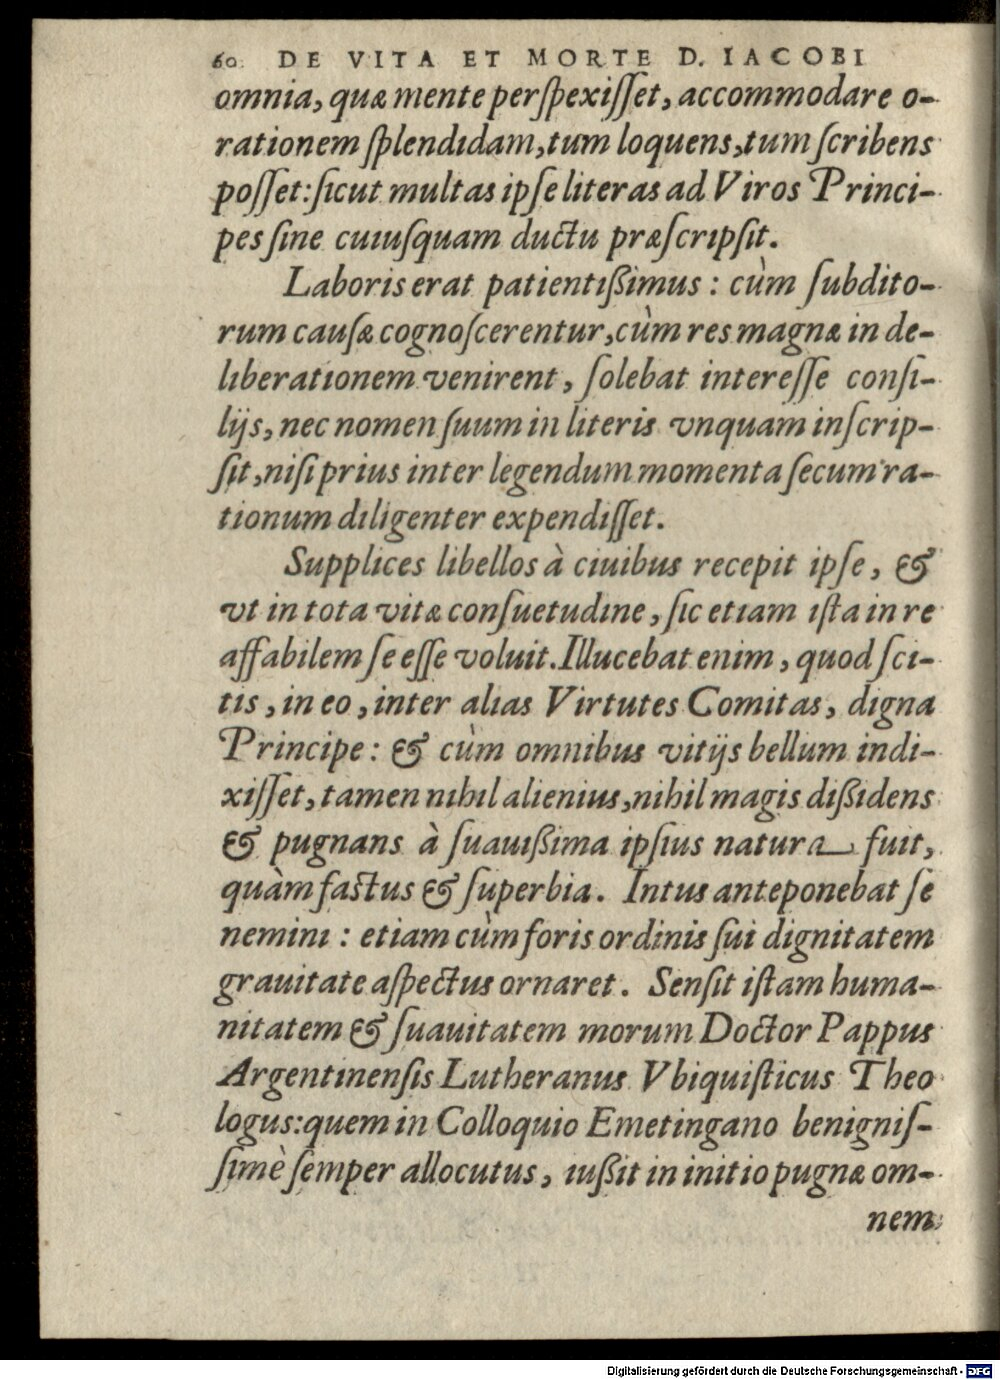 60 DE VITA ET MORTE D. IACOBI
omnia, quæ mente perſpexiſſet, accommodare o-
rationem ſplendidam, tum loquens, tum ſcribens
poſſet: ſicut multas ipſe literas ad Viros Princi-
pes ſine cuiuſquam ductu præſcripſit.
Laboris erat patientißimus: cùm ſubdito-
rum cauſæ cognoſcerentur, cùm res magnæ in de-
liberationem venirent, ſolebat intereſſe conſi-
lijs, nec nomen ſuum in literis vnquam inſcrip-
ſit, niſi prius inter legendum momenta ſecum ra-
tionum diligenter expendiſſet.
Supplices libellos à ciuibus recepit ipſe, &
vt in tota vitæ conſuetudine, ſic etiam iſta in re
affabilem ſe eſſe voluit. Illucebat enim, quod ſci-
tis, in eo, inter alias Virtutes Comitas, digna
Principe: & cùm omnibus vitijs bellum indi-
xiſſet, tamen nihil alienius, nihil magis dißidens
& pugnans à ſuauißima ipſius natura fuit,
quàm faſtus & ſuperbia. Intus anteponebat ſe
nemini: etiam cùm foris ordinis ſui dignitatem
grauitate aſpectus ornaret. Senſit iſtam huma-
nitatem & ſuauitatem morum Doctor Pappus
Argentinenſis Lutheranus Vbiquiſticus Theo
logus: quem in Colloquio Emetingano benigniſ-
ſimè ſemper allocutus, iußit in initio pugnæ om-
nem
Digitalisierung gefördert durch die Deutsche Forschungsgemeinschaft - DFG